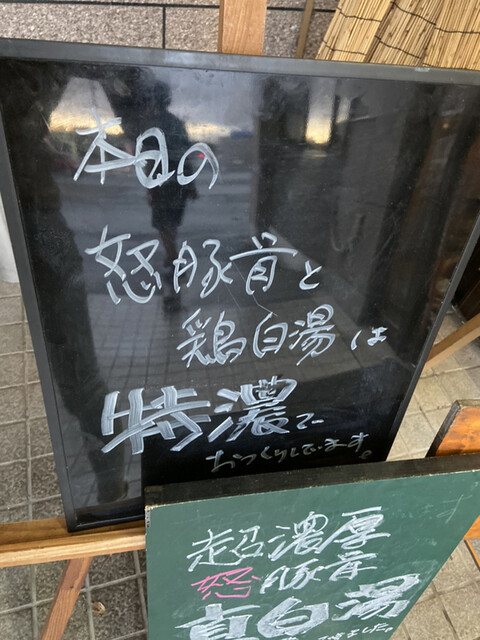 本日の
怒豚骨と
鶏白湯は
特濃で
おつくりしています。
超濃厚
怒豚骨
真白湯